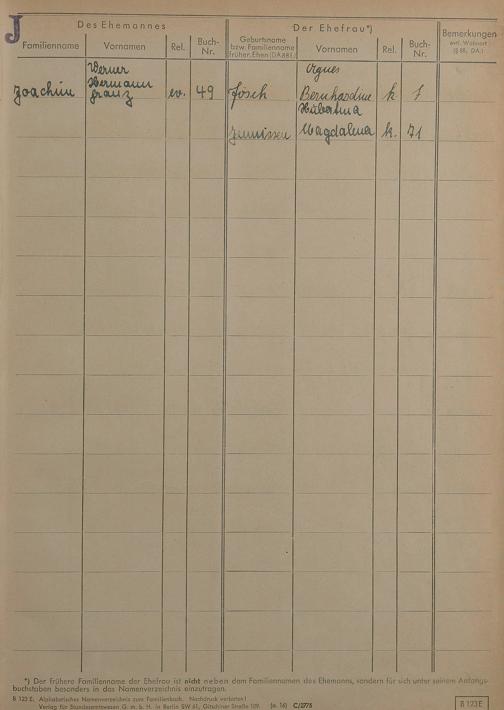 J
Des Ehemannes
Der Ehefrau*)
Bemerkungen
evtl. Wohnort
(§ 88, DA.)
Familienname Vornamen Rel. Buch-Nr.
Geburtsname
bzw. Familienname
früher. Ehen (DA§81)
Vornamen Rel. Buch-Nr.
Werner Agnes
Hermann
Joachim Franz ev. 49 Jösch Bernhardine k 1
Hubertina
Magdalena k. 71
*) Der frühere Familienname der Ehefrau ist nicht neben dem Familiennamen des Ehemanns, sondern für sich unter seinem Anfangs-
buchstaben besonders in das Namenverzeichnis einzutragen.
B 123 E. Alphabetisches Namenverzeichnis zum Familienbuch. Nachdruck verboten!
Verlag für Standesamtswesen G. m. b. H. in Berlin SW 61, Gitschiner Straße 109. C/2775
B 123 E